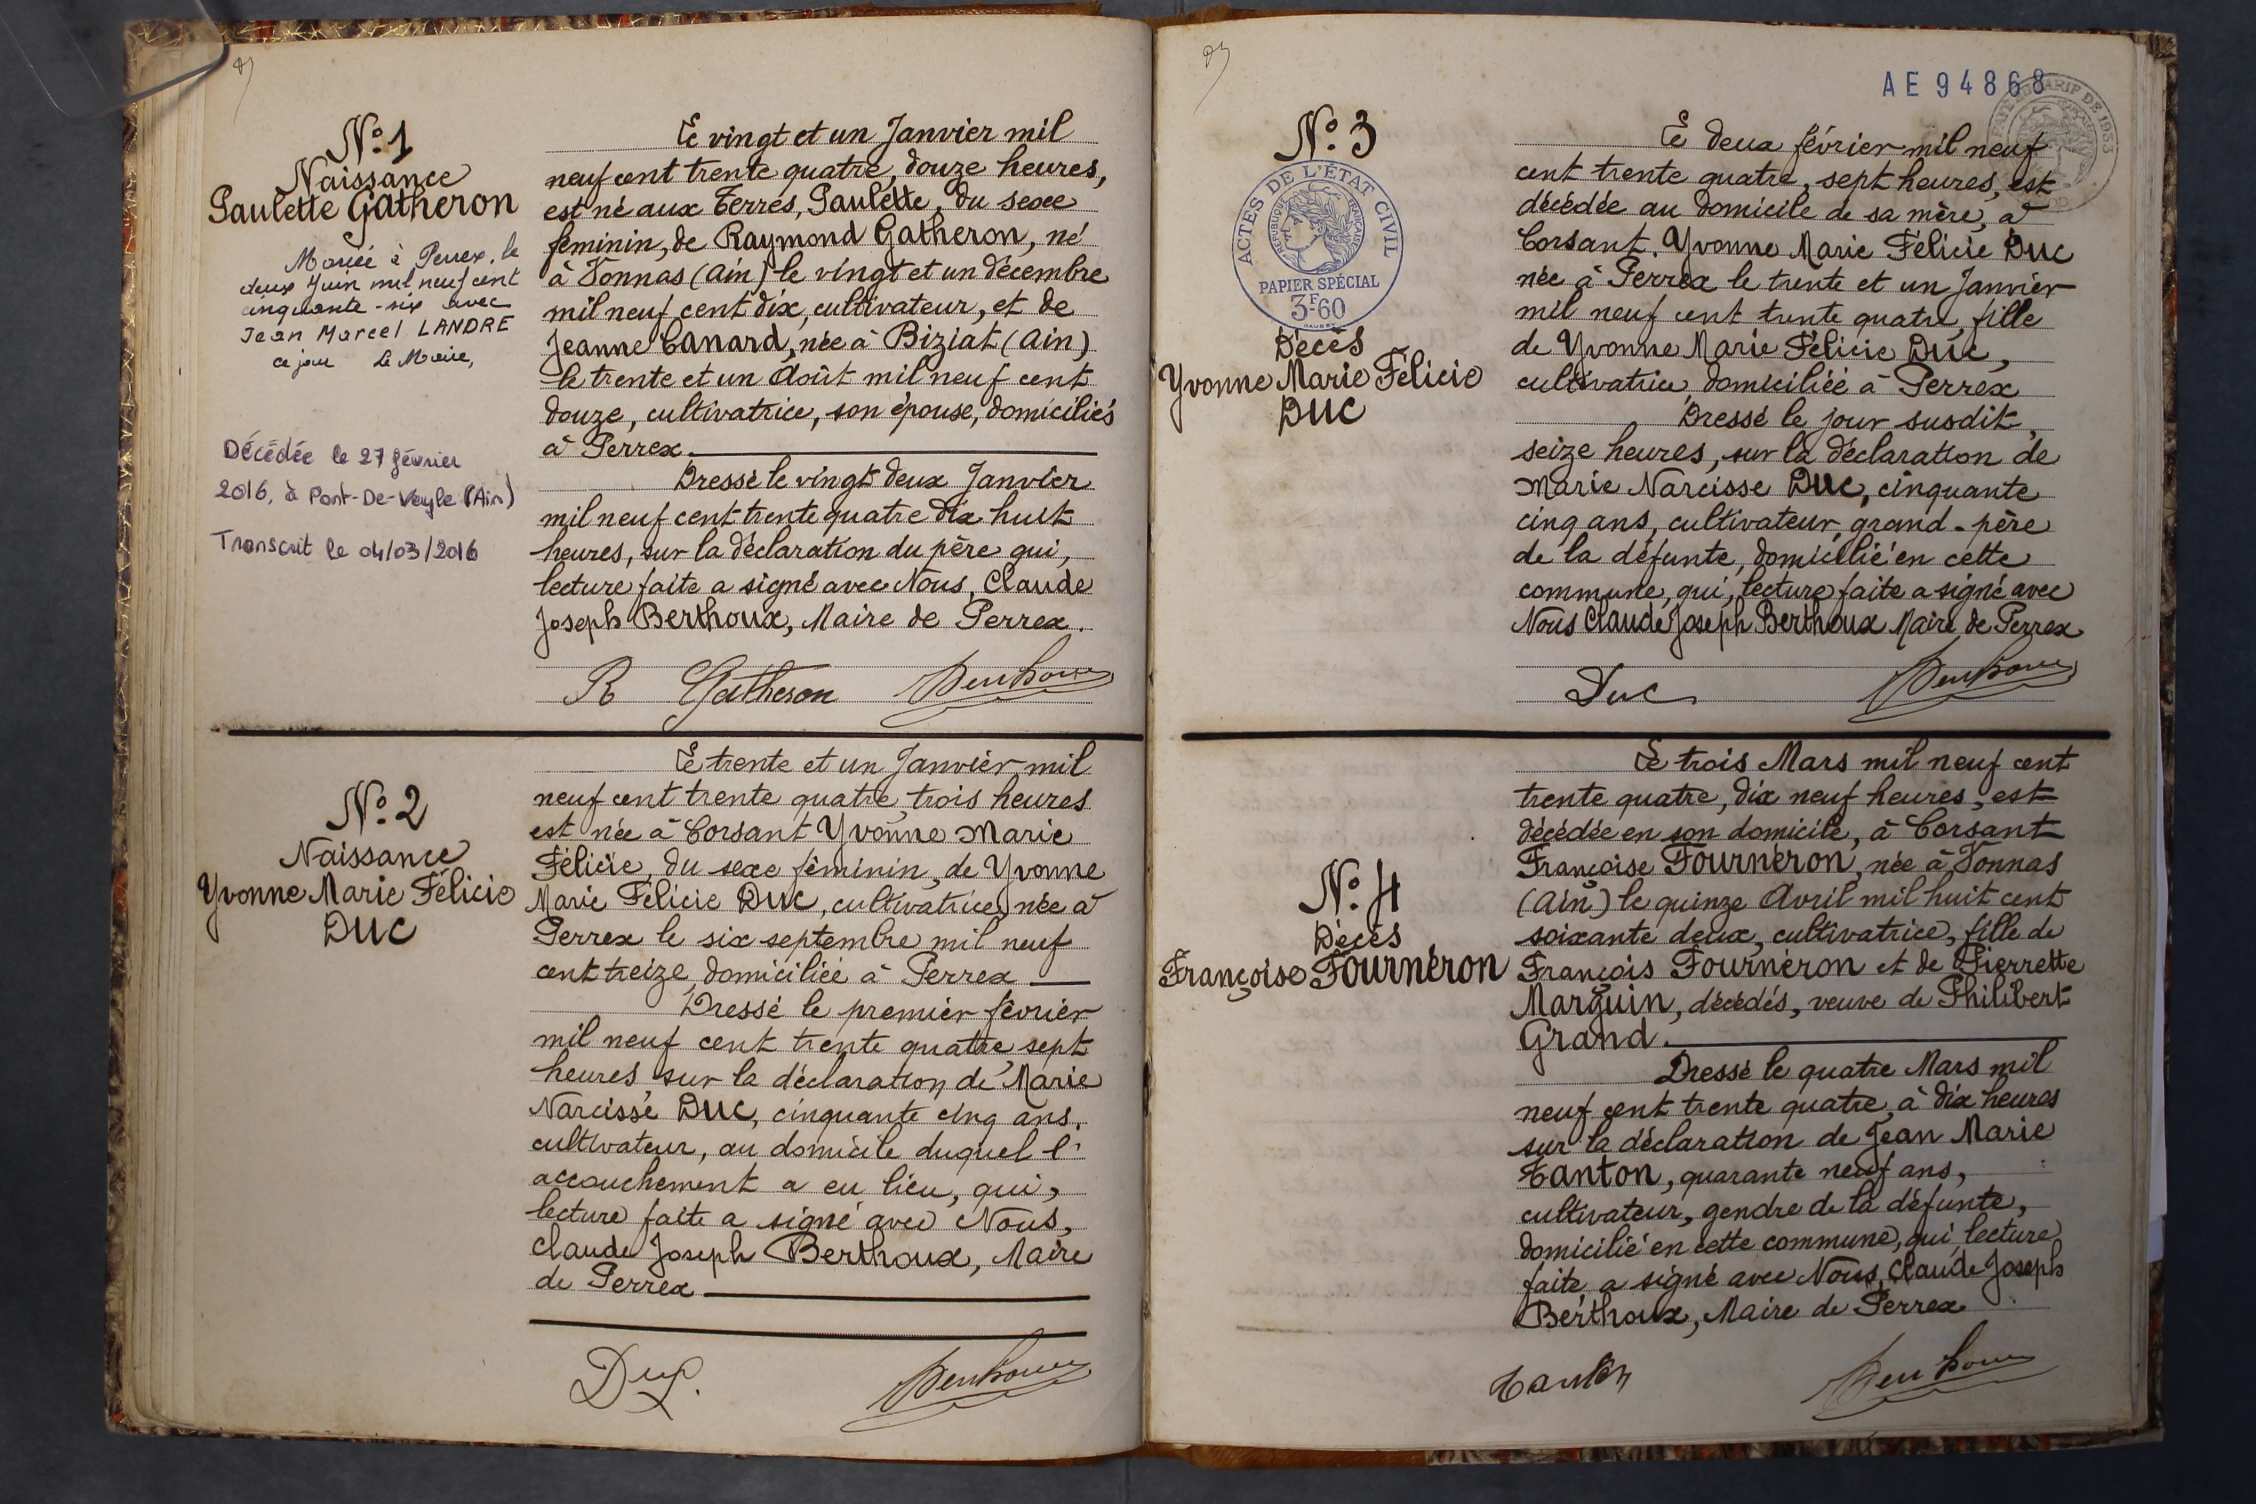 N° 1
Naissance
Paulette Gatheron
Mariée à Perrex, le
deux Juin mil neuf cent
cinquante-six avec
Jean Marcel LANDRE
ce jour Le Maire,
Décédée le 27 février
2016, à Pont-De-Veyle (Ain)
Transcrit le 04/03/2016
Le vingt et un Janvier mil
neuf cent trente quatre, douze heures,
est né aux Terres, Paulette, du sexe
féminin, de Raymond Gatheron, né
à Vonnas (Ain) le vingt et un décembre
mil neuf cent dix, cultivateur, et de
Jeanne Canard, née à Biziat (Ain)
le trente et un Août mil neuf cent
douze, cultivatrice, son épouse, domiciliés
à Perrex
Dressé le vingt deux Janvier
mil neuf cent trente quatre dix huit
heures, sur la déclaration du père qui,
lecture faite a signé avec Nous, Claude
Joseph Berthoux, Maire de Perrex.
R Gatheron Berthoux
N° 2
Naissance
Yvonne Marie Félicie
DUC
Le trente et un Janvier mil
neuf cent trente quatre, trois heures
est née à Corsant Yvonne Marie
Félicie, du sexe féminin, de Yvonne
Marie Félicie DUC, cultivatrice, née à
Perrex le six septembre mil neuf
cent treize, domiciliée à Perrex
Dressé le premier février
mil neuf cent trente quatre sept
heures sur la déclaration de Marie
Narcisse DUC, cinquante cinq ans,
cultivateur, au domicile duquel l'
accouchement a eu lieu, qui,
lecture faite a signé avec Nous,
Claude Joseph Berthoux, Maire
de Perrex
Duc. Berthoux
AE 94868
N° 3
ACTES DE L'ÉTAT CIVIL
RÉPUBLIQUE FRANÇAISE
PAPIER SPÉCIAL
3F60
Décès
Yvonne Marie Félicie
DUC
Le deux février mil neuf
cent trente quatre, sept heures, est
décédée au domicile de sa mère, à
Corsant. Yvonne Marie Félicie DUC
née à Perrex le trente et un Janvier
mil neuf cent trente quatre, fille
de Yvonne Marie Félicie DUC,
cultivatrice, domiciliée à Perrex
Dressé le jour susdit,
seize heures, sur la déclaration de
Marie Narcisse DUC, cinquante
cinq ans, cultivateur, grand-père
de la défunte, domicilié en cette
commune, qui, lecture faite a signé avec
Nous Claude Joseph Berthoux Maire de Perrex
Duc Berthoux
N° 4
Décès
Françoise Fournéron
Le trois Mars mil neuf cent
trente quatre, dix neuf heures, est
décédée en son domicile, à Corsant
Françoise Fournéron, née à Vonnas
(Ain) le quinze Avril mil huit cent
soixante deux, cultivatrice, fille de
François Fournéron et de Pierrette
Marguin, décédés, veuve de Philibert
Grand.
Dressé le quatre Mars mil
neuf cent trente quatre, à dix heures
sur la déclaration de Jean Marie
Tanton, quarante neuf ans,
cultivateur, gendre de la défunte,
domicilié en cette commune, qui, lecture
faite, a signé avec Nous, Claude Joseph
Berthoux, Maire de Perrex
Tanton Berthoux